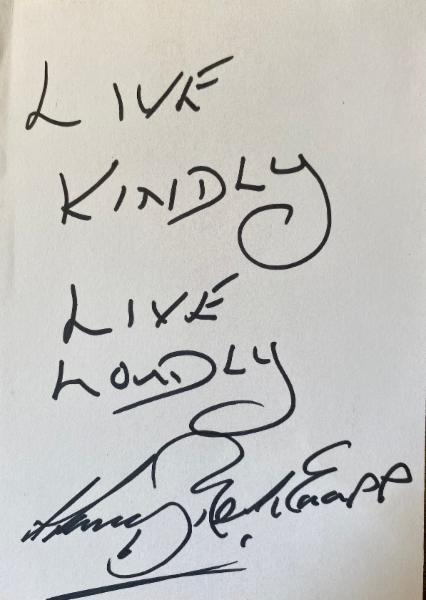 LIVE
KINDLY
LIVE
LOUDLY